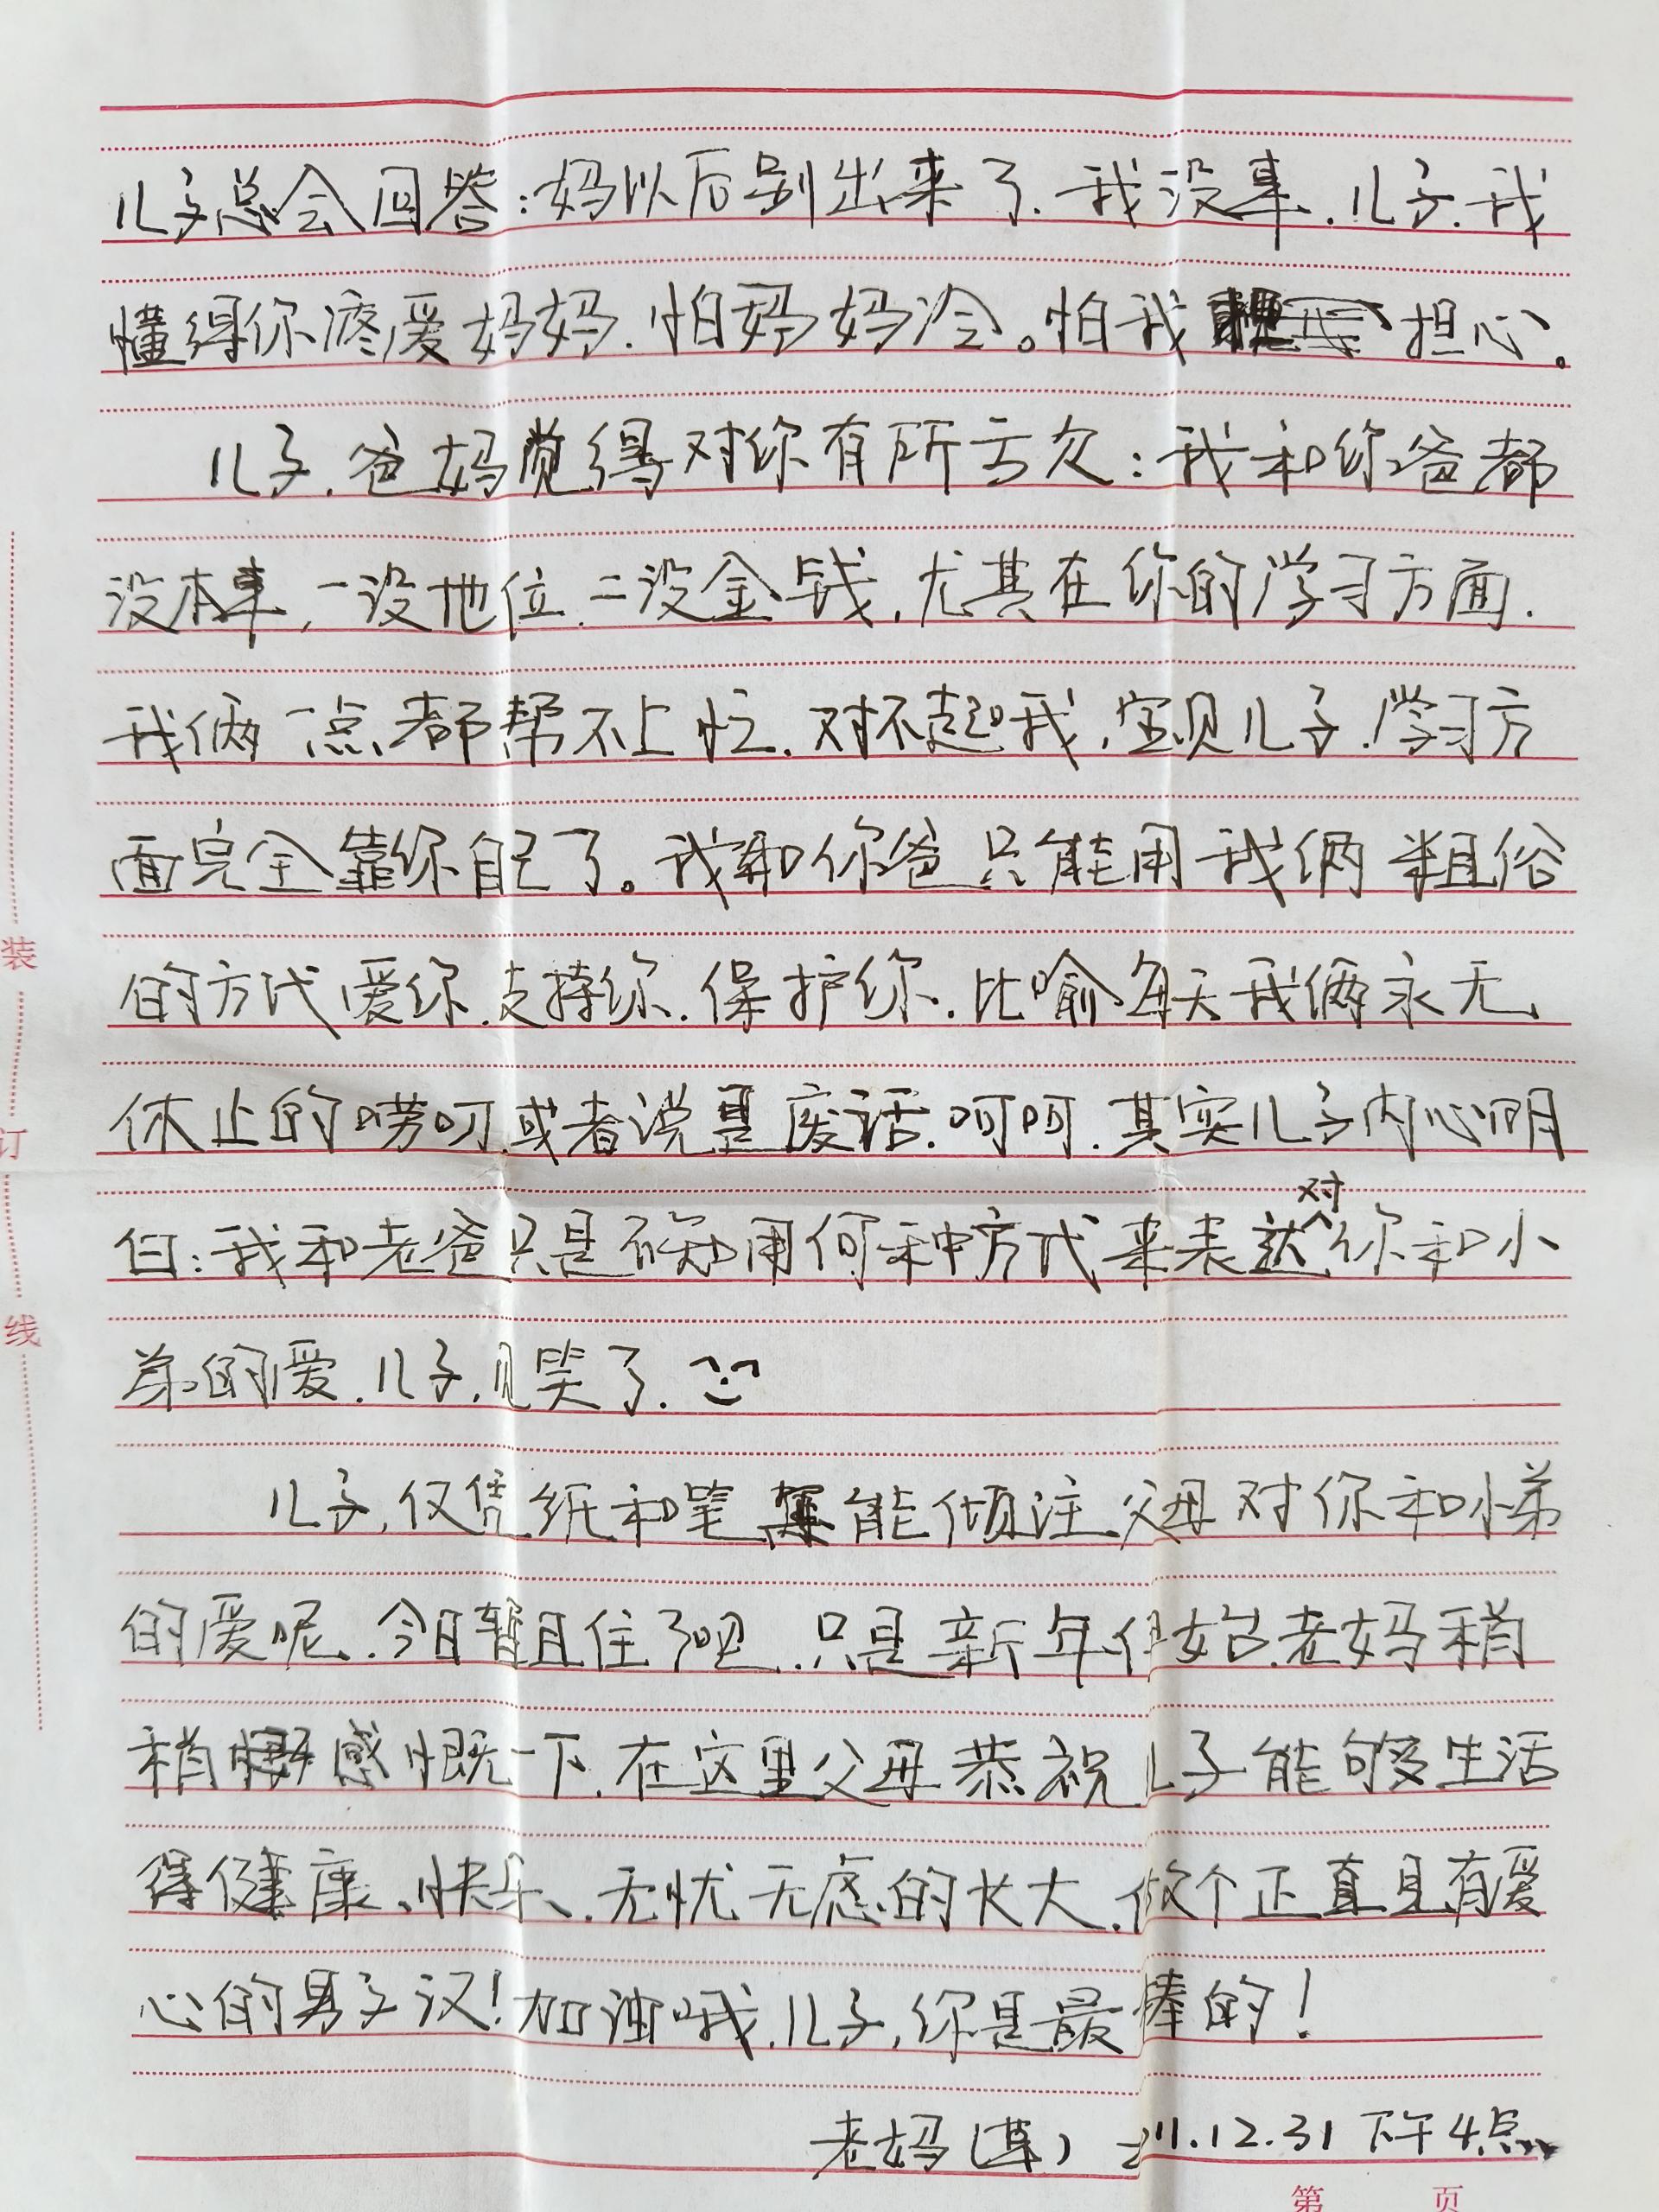 儿子总会回答：妈以后别出来了.我没事.儿子.我
懂得你疼爱妈妈.怕妈妈冷。怕我担心。
儿子.爸妈觉得对你有所亏欠：我和你爸都
没本事,一没地位.二没金钱,尤其在你的学习方面.
我俩一点都帮不上忙.对不起我,宝贝儿子.学习方
面完全靠你自己了。我和你爸只能用我俩粗俗
的方式爱你.支持你.保护你.比喻每天我俩永无
休止的唠叨.或者说是废话.呵呵.其实儿子内心明
白：我和老爸只是不知用何种方式来表达对你和小
弟的爱.儿子,见笑了.
儿子,仅凭纸和笔能倾注父母对你和小弟
的爱呢.今日暂且住了吧.只是新年伊始.老妈稍
稍感慨一下.在这里父母恭祝儿子能够生活
得健康、快乐、无忧无虑的长大.做个正直且有爱
心的男子汉！加油哦.儿子,你是最棒的！
老妈(草) 12.31 下午4点
装
订
线
第 页